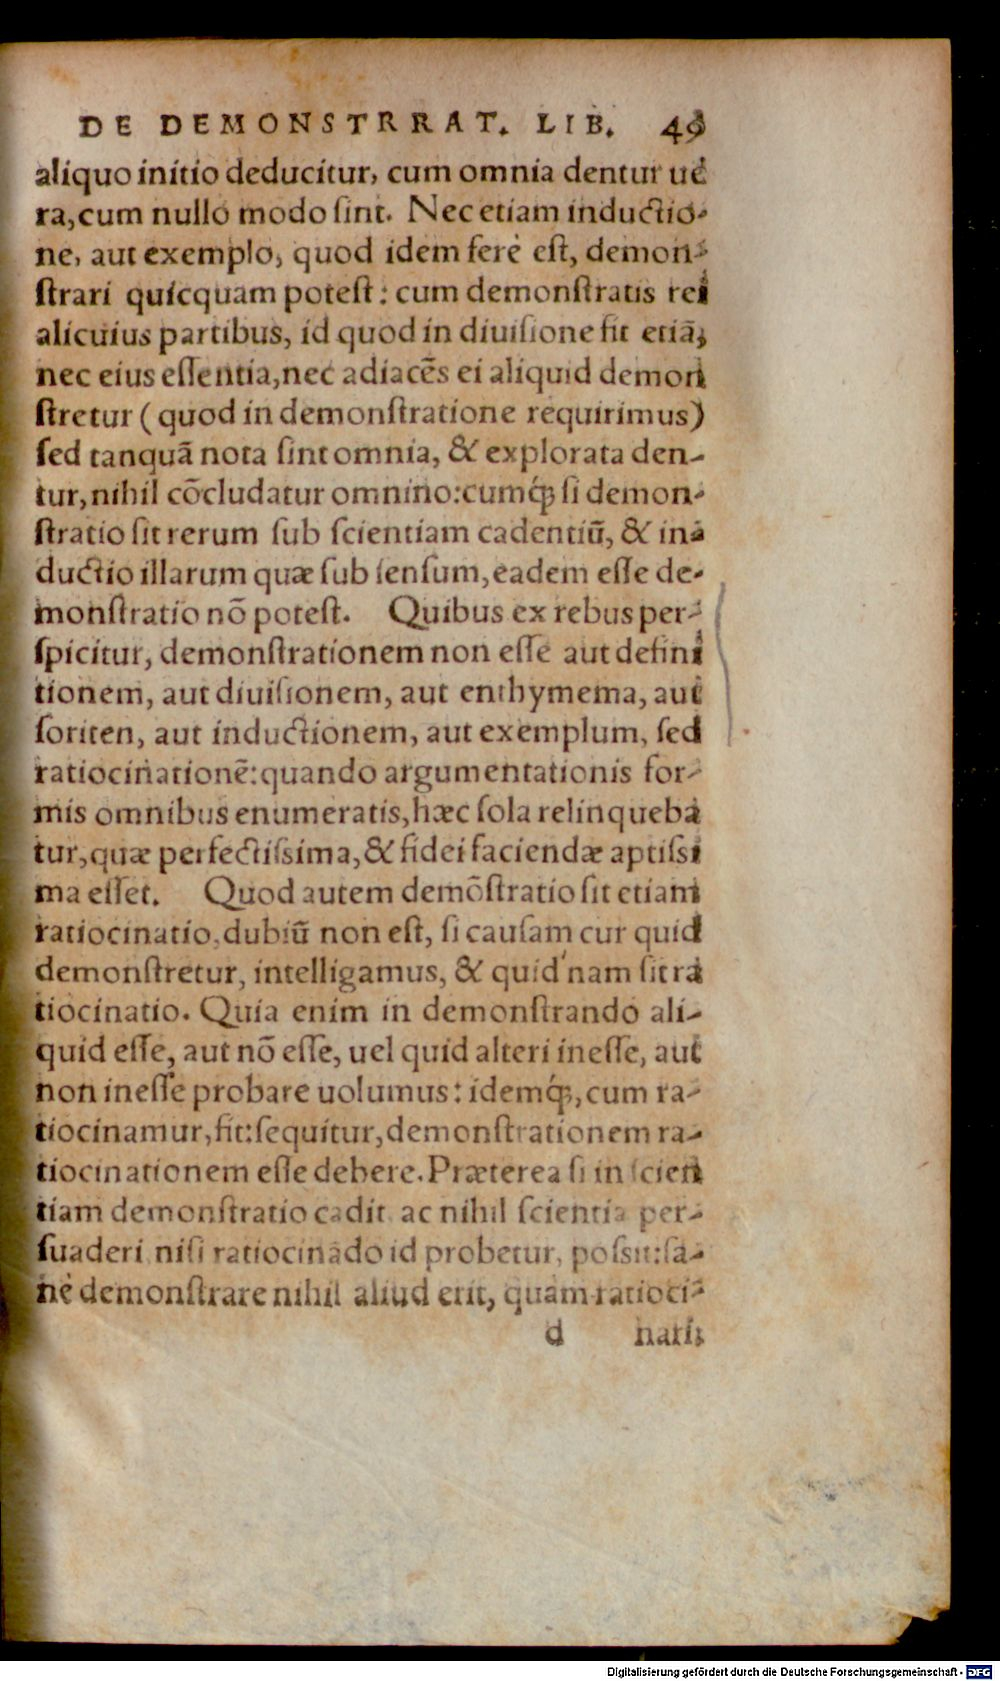 DE DEMONSTRRAT. LIB. 49
aliquo initio deducitur, cum omnia dentur ue
ra, cum nullo modo sint. Nec etiam inductio-
ne, aut exemplo, quod idem ferè est, demon-
strari quicquam potest: cum demonstratis rei
alicuius partibus, id quod in diuisione fit etiā,
nec eius essentia, nec adiacēs ei aliquid demon
stretur (quod in demonstratione requirimus)
sed tanquā nota sint omnia, & explorata den-
tur, nihil cōcludatur omnino: cumq́; si demon-
stratio sit rerum sub scientiam cadentiū, & in-
ductio illarum quæ sub sensum, eadem esse de-
monstratio nō potest. Quibus ex rebus per-
spicitur, demonstrationem non esse aut defini
tionem, aut diuisionem, aut enthymema, aut
soriten, aut inductionem, aut exemplum, sed
ratiocinationē: quando argumentationis for-
mis omnibus enumeratis, hæc sola relinqueba
tur, quæ perfectissima, & fidei faciendæ aptissi
ma esset. Quod autem demōstratio sit etiam
ratiocinatio, dubiū non est, si causam cur quid
demonstretur, intelligamus, & quid'nam sit ra
tiocinatio. Quia enim in demonstrando ali-
quid esse, aut nō esse, uel quid alteri inesse, aut
non inesse probare uolumus: idemq́;, cum ra-
tiocinamur, fit: sequitur, demonstrationem ra-
tiocinationem esse debere. Præterea si in scien
tiam demonstratio cadit, ac nihil scientia per-
suaderi nisi ratiocinādo id probetur, possit: sa-
nè demonstrare nihil aliud erit, quàm ratioci-
d natis
Digitalisierung gefördert durch die Deutsche Forschungsgemeinschaft - DFG